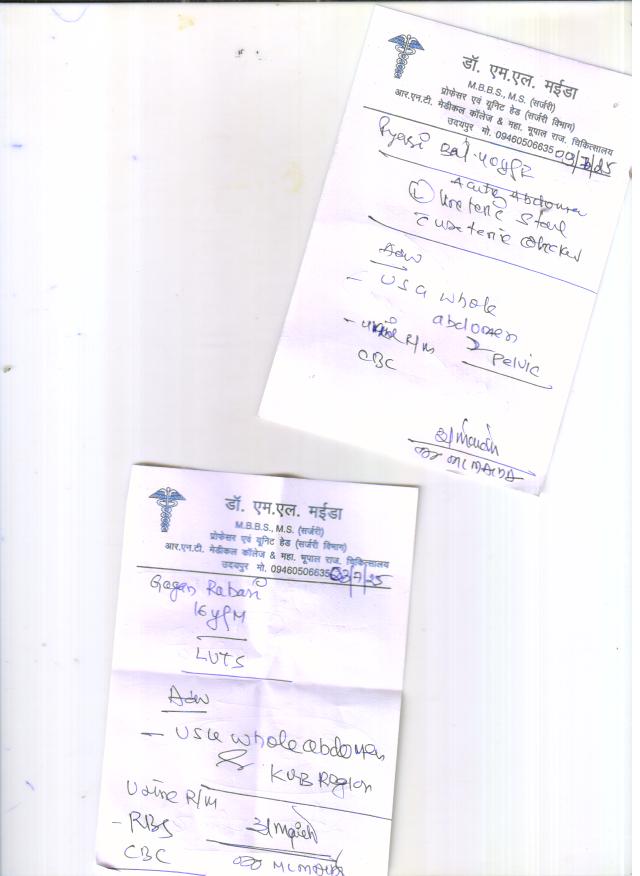 डॉ. एम.एल. मईडा
M.B.B.S., M.S. (सर्जरी)
प्रोफेसर एवं यूनिट हेड (सर्जरी विभाग)
आर.एन.टी. मेडीकल कॉलेज & महा. भूपाल राज. चिकित्सालय
उदयपुर मो. 09460506635
Pyari Bai 40y/F
Acute Abdomen
(L) Ureteric Stone
Adv
- USG whole
abdomen
& Pelvic
- R/M
CBC
डॉ. एम.एल. मईडा
M.B.B.S., M.S. (सर्जरी)
प्रोफेसर एवं यूनिट हेड (सर्जरी विभाग)
आर.एन.टी. मेडीकल कॉलेज & महा. भूपाल राज. चिकित्सालय
उदयपुर मो. 09460506635 03/7/25
Gagan Rabari
16y/M
LUTS
Adv
- USG whole abdomen
& KUB Region
Urine R/M
- RBS
CBC